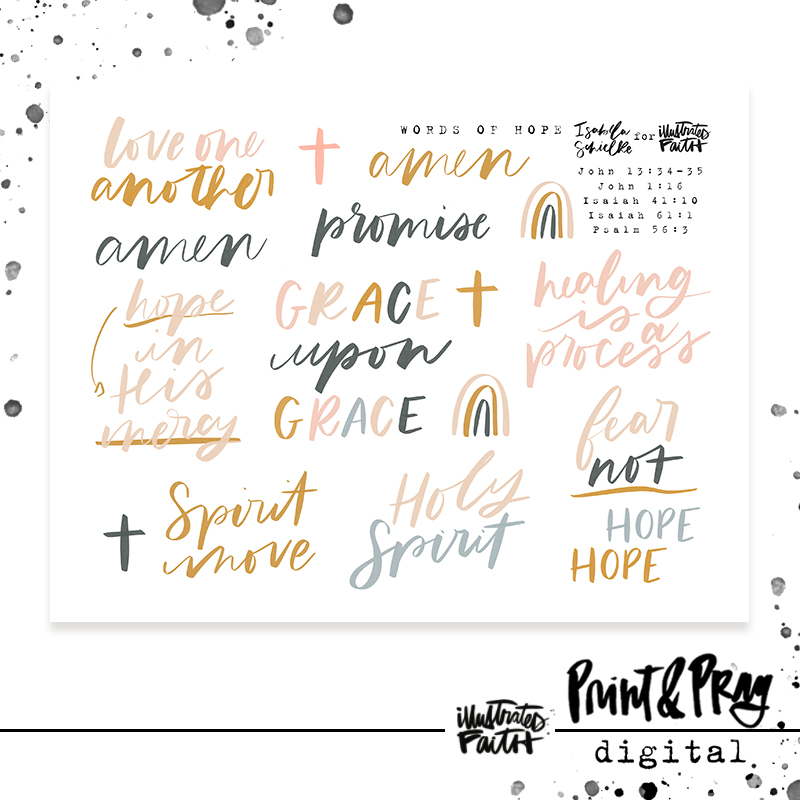 love one
another
amen
WORDS OF HOPE
Isabela
Schielke
for
illustrated
FAITH
John 13:34-35
John 1:16
Isaiah 41:10
Isaiah 61:1
Psalm 56:3
amen
promise
hope
in
His
mercy
GRACE
upon
GRACE
healing
is a
process
fear
not
Spirit
move
Holy
Spirit
HOPE
HOPE
illustrated
FAITH
Print & Pray
digital